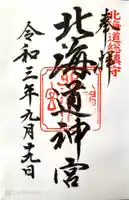 奉拝
北海道総鎮守
北海道神宮
令和三年九月十九日